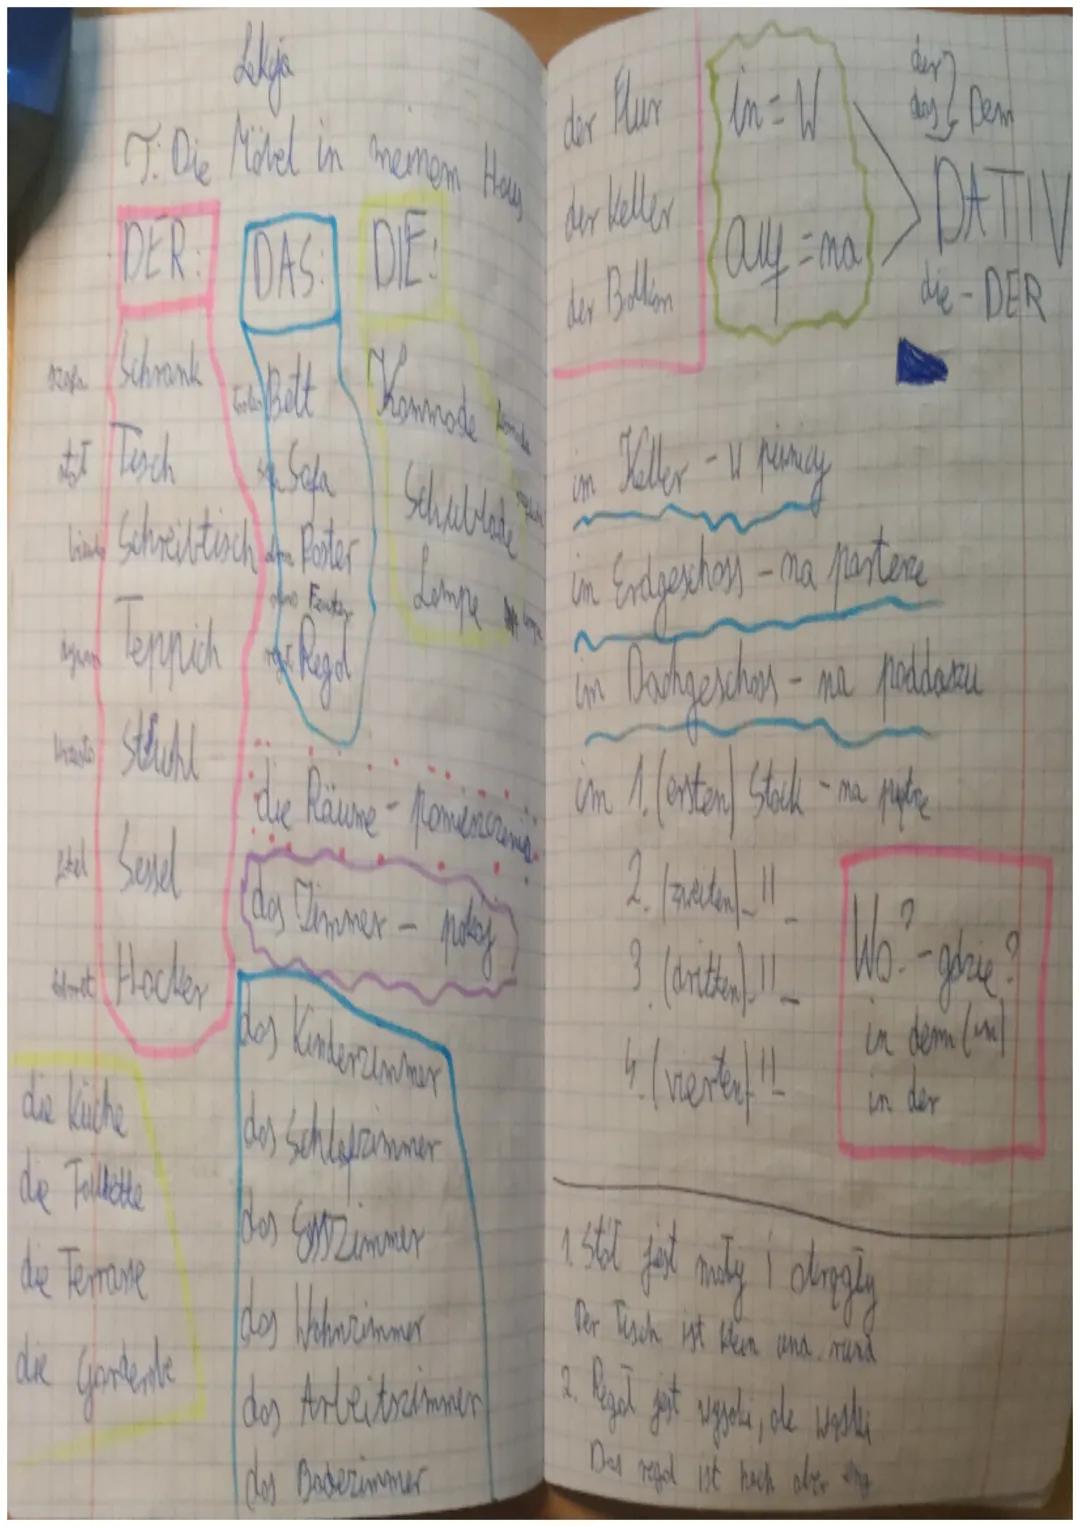 Lekcja
T: Die Möbel in meinem Haus
DER:
szafa Schrank
stół Tisch
biurko Schreibtisch
Teppich
krzesło Stuhl
Sessel
Hocker
DAS:
Bett
Sofa
Poster
Fenster
regał Regal
DIE:
Kommode komoda
Schublade
Lampe lampa
die Räume - pomieszczenia
das Zimmer - pokój
das Kinderzimmer
das Schlafzimmer
das Esszimmer
das Wohnzimmer
das Arbeitszimmer
das Badezimmer
die Küche
die Toilette
die Terrasse
die Garderobe
der Flur
der Keller
der
in = W
auf = na
der
das } Dem
DATIV
die - DER
im Keller - w piwnicy
im Erdgeschoss - na parterze
im Dachgeschoss - na poddaszu
im 1. (ersten) Stock - na piętrze
2. (zweiten) -"-
3. (dritten) -"-
4. (vierten) -"-
Wo? - gdzie?
in dem (im)
in der
1. Stół jest mały i okrągły
Der Tisch ist klein und rund
2. Regał jest wysoki, ale wąski
Das regal ist hoch aber eng